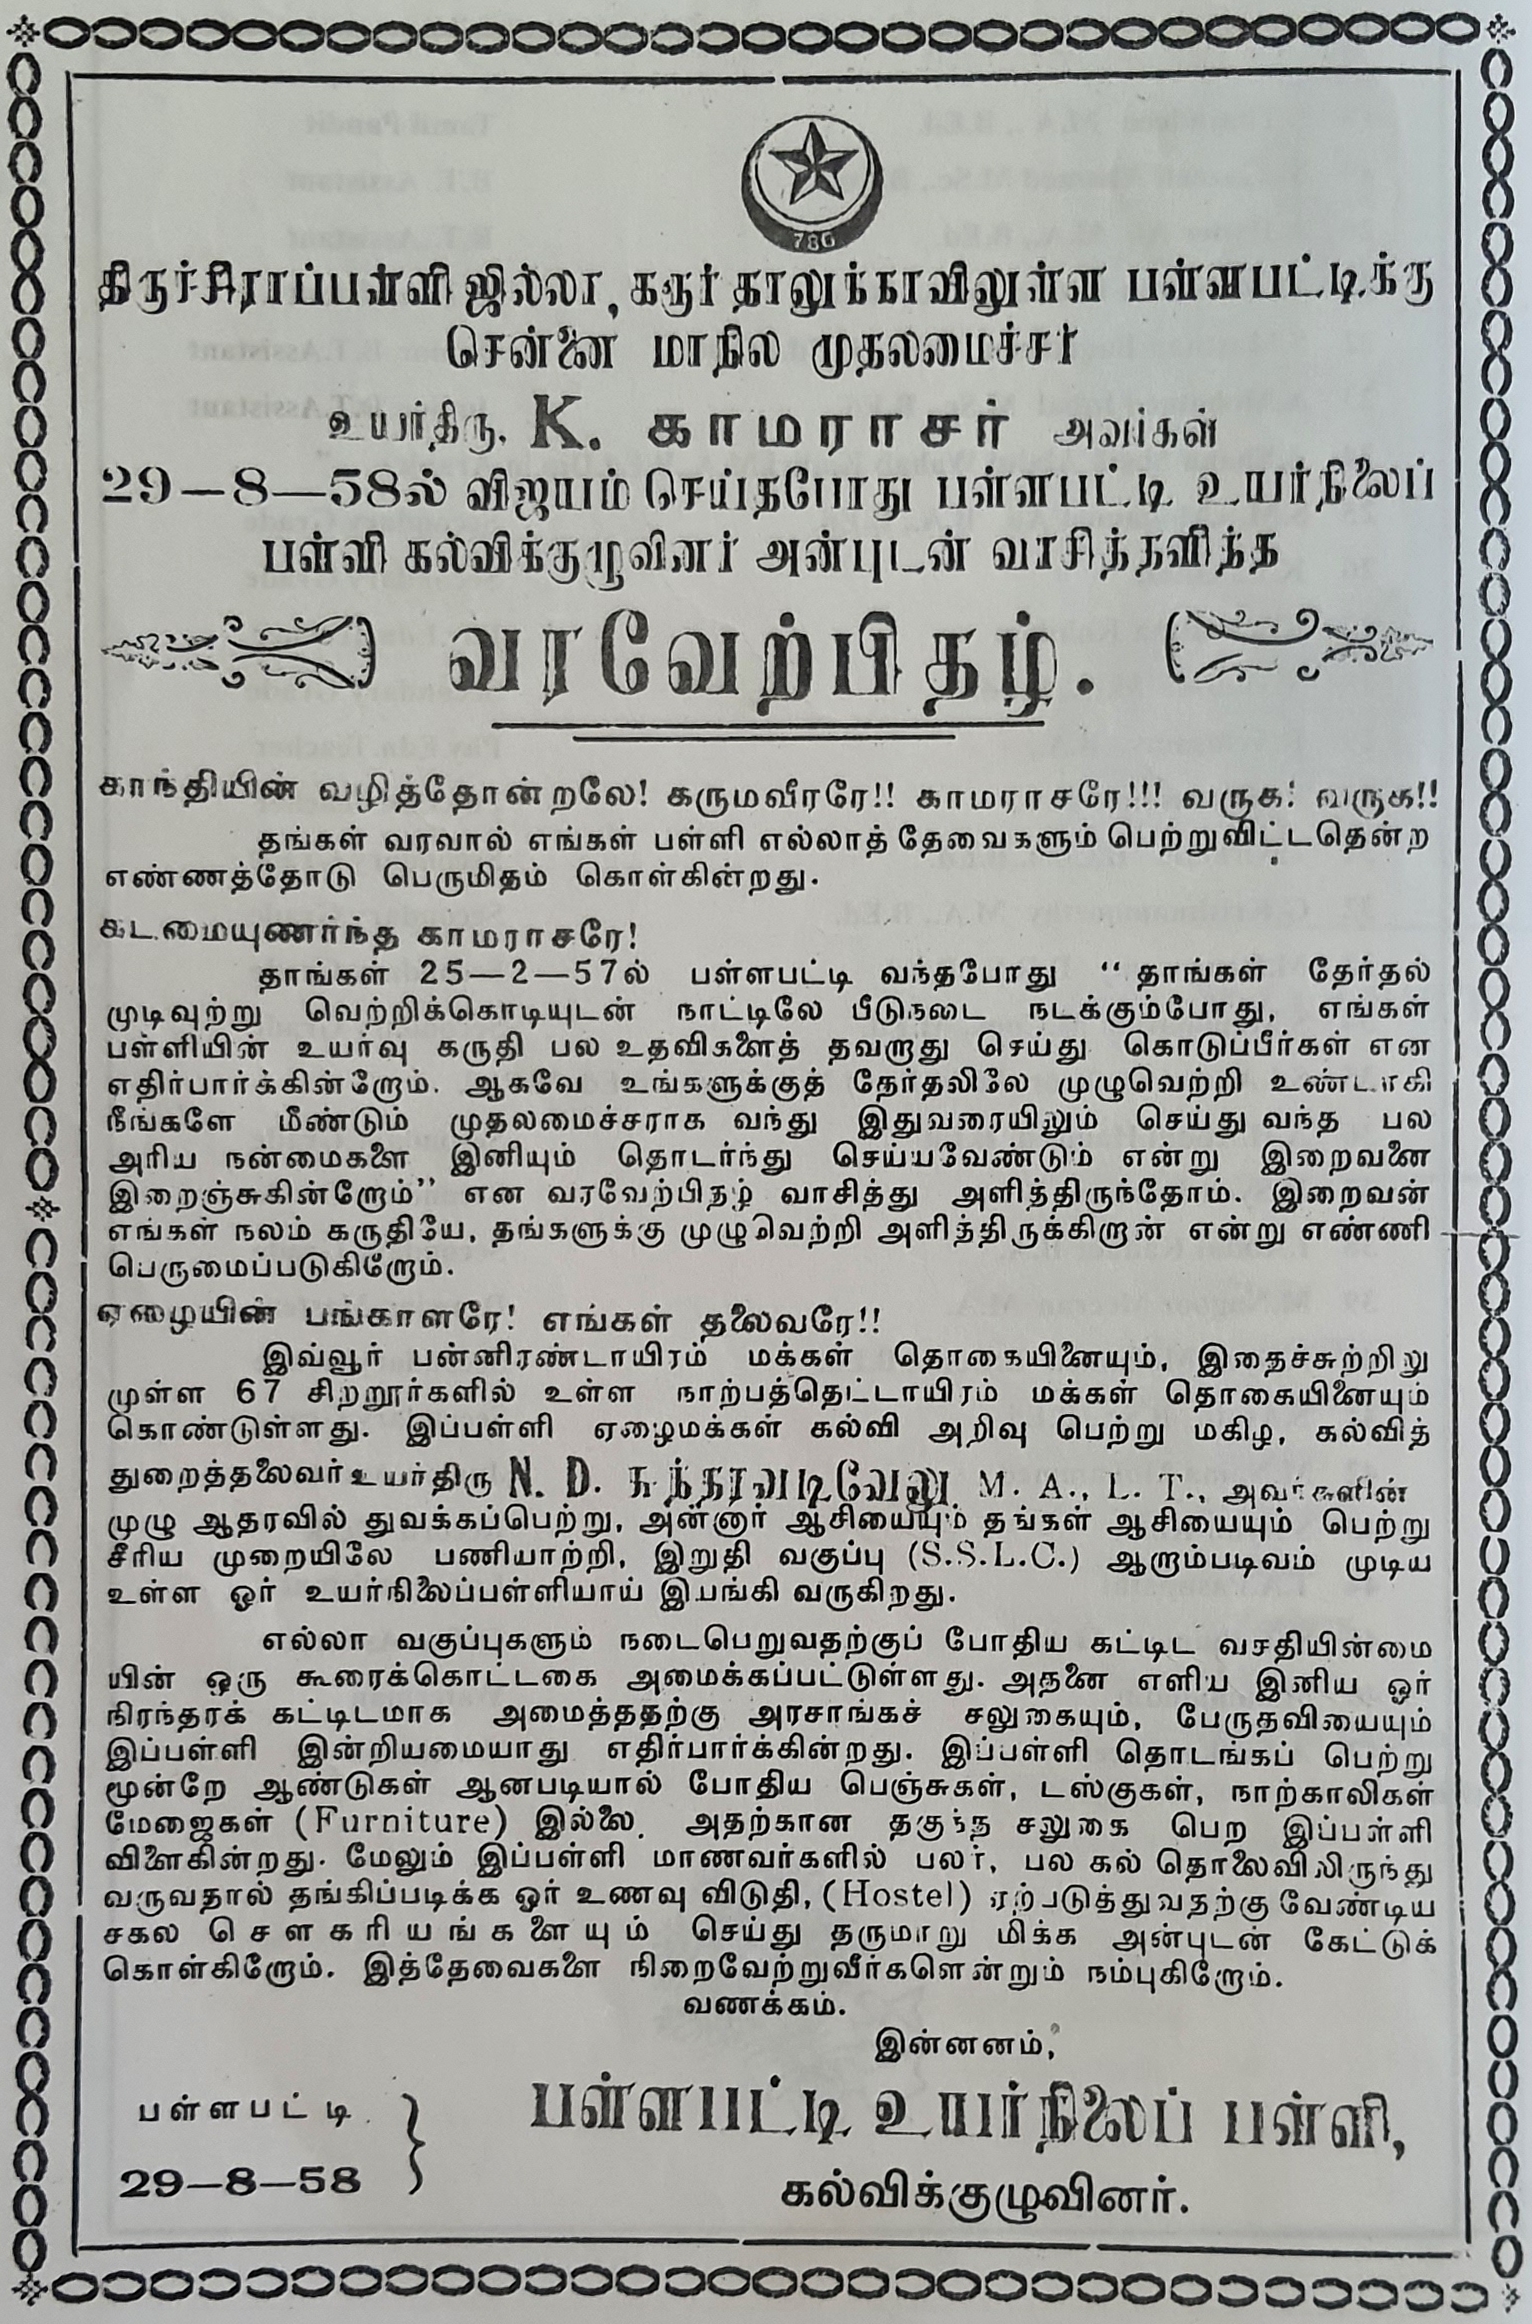 786
திருச்சிராப்பள்ளி ஜில்லா, கரூர் தாலுக்காவிலுள்ள பள்ளபட்டிக்கு
சென்னை மாநில முதலமைச்சர்
உயர்திரு. K. காமராசர் அவர்கள்
29—8—58ல் விஜயம் செய்தபோது பள்ளபட்டி உயர்நிலைப்
பள்ளி கல்விக்குழுவினர் அன்புடன் வாசித்தளித்த
வரவேற்பிதழ்.
காந்தியின் வழித்தோன்றலே! கருமவீரரே!! காமராசரே!!! வருக! வருக!!
தங்கள் வரவால் எங்கள் பள்ளி எல்லாத் தேவைகளும் பெற்றுவிட்டதென்ற
எண்ணத்தோடு பெருமிதம் கொள்கின்றது.
கடமையுணர்ந்த காமராசரே!
தாங்கள் 25—2—57ல் பள்ளபட்டி வந்தபோது “ தாங்கள் தேர்தல்
முடிவுற்று வெற்றிக்கொடியுடன் நாட்டிலே பீடுநடை நடக்கும்போது, எங்கள்
பள்ளியின் உயர்வு கருதி பல உதவிகளைத் தவறாது செய்து கொடுப்பீர்கள் என
எதிர்பார்க்கின்றோம். ஆகவே உங்களுக்குத் தேர்தலிலே முழுவெற்றி உண்டாகி
நீங்களே மீண்டும் முதலமைச்சராக வந்து இதுவரையிலும் செய்து வந்த பல
அரிய நன்மைகளை இனியும் தொடர்ந்து செய்யவேண்டும் என்று இறைவனை
இறைஞ்சுகின்றோம்” என வரவேற்பிதழ் வாசித்து அளித்திருந்தோம். இறைவன்
எங்கள் நலம் கருதியே, தங்களுக்கு முழுவெற்றி அளித்திருக்கிறான் என்று எண்ணி
பெருமைப்படுகிறோம்.
ஏழையின் பங்காளரே! எங்கள் தலைவரே!!
இவ்வூர் பன்னிரண்டாயிரம் மக்கள் தொகையினையும், இதைச்சுற்றிலு
முள்ள 67 சிற்றூர்களில் உள்ள நாற்பத்தெட்டாயிரம் மக்கள் தொகையினையும்
கொண்டுள்ளது. இப்பள்ளி ஏழைமக்கள் கல்வி அறிவு பெற்று மகிழ, கல்வித்
துறைத்தலைவர் உயர்திரு N. D. சுந்தரவடிவேலு, M. A., L. T., அவர்களின்
முழு ஆதரவில் துவக்கப்பெற்று, அன்னார் ஆசியையும் தங்கள் ஆசியையும் பெற்று
சீரிய முறையிலே பணியாற்றி, இறுதி வகுப்பு (S.S.L.C.) ஆறாம்படிவம் முடிய
உள்ள ஓர் உயர்நிலைப்பள்ளியாய் இயங்கி வருகிறது.
எல்லா வகுப்புகளும் நடைபெறுவதற்குப் போதிய கட்டிட வசதியின்மை
யின் ஒரு கூரைக்கொட்டகை அமைக்கப்பட்டுள்ளது. அதனை எளிய இனிய ஓர்
நிரந்தரக் கட்டிடமாக அமைத்ததற்கு அரசாங்கச் சலுகையும், பேருதவியையும்
இப்பள்ளி இன்றியமையாது எதிர்பார்க்கின்றது. இப்பள்ளி தொடங்கப் பெற்று
மூன்றே ஆண்டுகள் ஆனபடியால் போதிய பெஞ்சுகள், டஸ்குகள், நாற்காலிகள்
மேஜைகள் (Furniture) இல்லை. அதற்கான தகுந்த சலுகை பெற இப்பள்ளி
விளைகின்றது. மேலும் இப்பள்ளி மாணவர்களில் பலர், பல கல் தொலைவிலிருந்து
வருவதால் தங்கிப்படிக்க ஓர் உணவு விடுதி, (Hostel) ஏற்படுத்துவதற்கு வேண்டிய
சகல சௌகரியங்களையும் செய்து தருமாறு மிக்க அன்புடன் கேட்டுக்
கொள்கிறோம். இத்தேவைகளை நிறைவேற்றுவீர்களென்றும் நம்புகிறோம்.
வணக்கம்.
இன்னனம்,
பள்ளபட்டி
29—8—58
பள்ளபட்டி உயர்நிலைப் பள்ளி,
கல்விக்குழுவினர்.